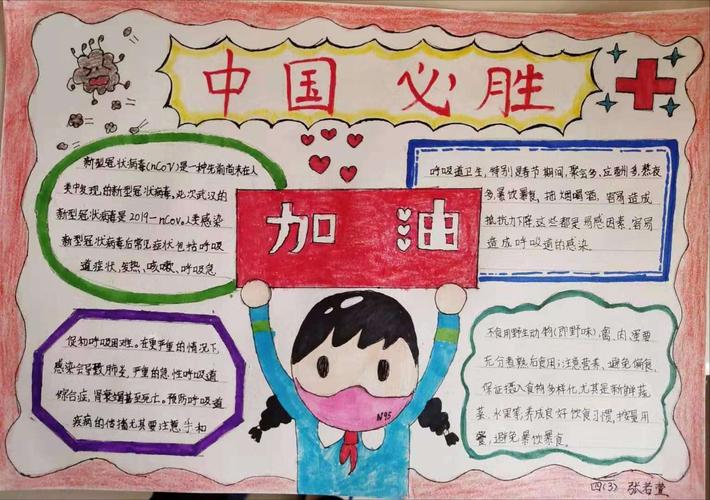 中国必胜
新型冠状病毒(nCoV)是一种先前尚未在人
类中发现的新型冠状病毒。此次武汉的
新型冠状病毒是2019-nCov。人类感染
新型冠状病毒后常见症状包括呼吸
道症状、发热、咳嗽、呼吸急
呼吸道卫生,特别是春节期间,聚会多,应酬多,熬夜
多,暴饮暴食,抽烟喝酒,容易造成
抵抗力下降,这些都是易感因素,容易
造成呼吸道的感染
加油
促和呼吸困难。在更严重的情况下,
感染会导致肺炎,严重的急性呼吸道
综合症,肾衰竭甚至死亡。预防呼吸道
疾病的传播尤其要注意手和
不食用野生动物(即野味),禽、肉、蛋要
充分煮熟后食用;注意营养、避免偏食,
保证摄入食物多样化,尤其是新鲜蔬
菜、水果等,养成良好饮食习惯,按量用
餐,避免暴饮暴食
N95
四(3) 张若萱